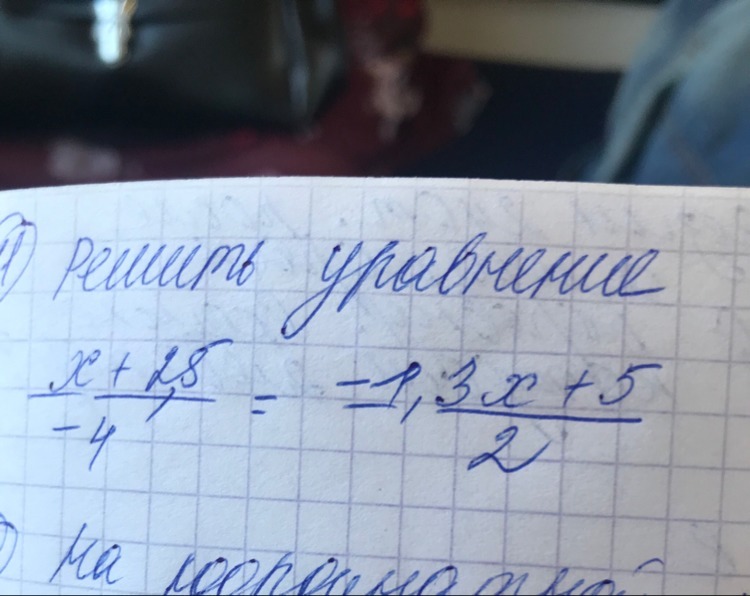 Решить уравнение
x + 2,5 / -4 = -1,3x + 5 / 2
На координатной